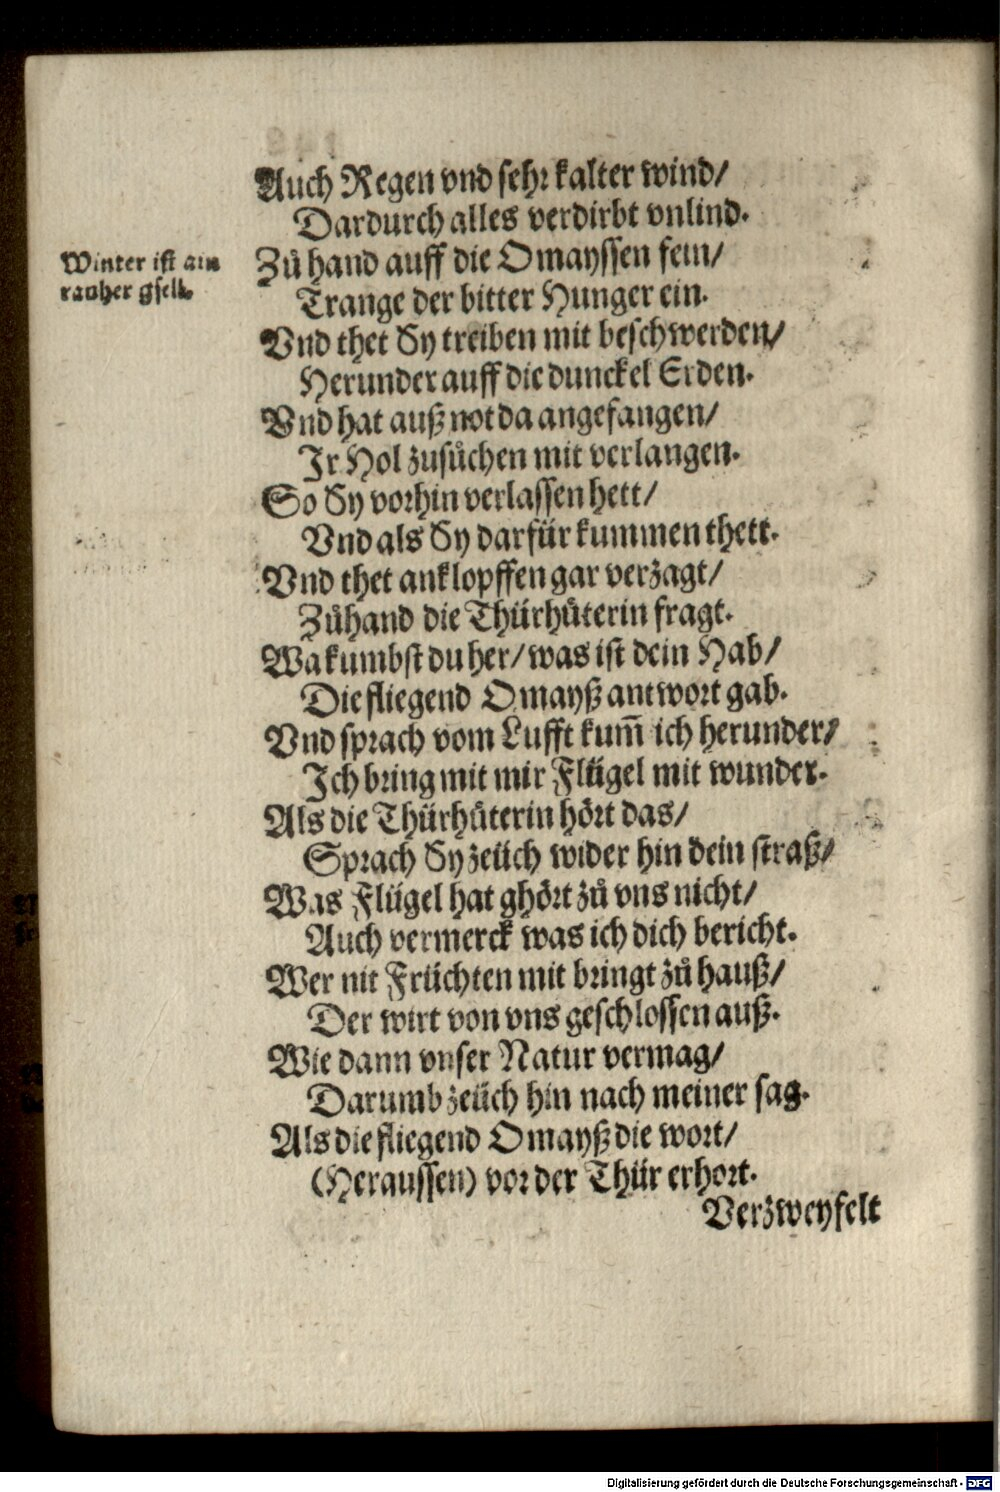 Auch Regen vnd sehr kalter wind/
Dardurch alles verdirbt vnlind.
Winter ist ain
rauher gsell.
Zů hand auff die Omayssen fein/
Trange der bitter Hunger ein.
Vnd thet Sy treiben mit beschwerden/
Herunder auff die dunckel Erden.
Vnd hat auß not da angefangen/
Ir Hol zusůchen mit verlangen.
So Sy vorhin verlassen hett/
Vnd als Sy darfür kummen thett.
Vnd thet anklopffen gar verzagt/
Zůhand die Thürhůterin fragt.
Wa kumbst du her/ was ist dein Hab/
Die fliegend Omayß antwort gab.
Vnd sprach vom Lufft kum̃ ich herunder/
Ich bring mit mir Flügel mit wunder.
Als die Thürhůterin hört das/
Sprach Sy zeüch wider hin dein straß/
Was Flügel hat ghört zů vns nicht/
Auch vermerck was ich dich bericht.
Wer nit Früchten mit bringt zů hauß/
Der wirt von vns geschlossen auß.
Wie dann vnser Natur vermag/
Darumb zeüch hin nach meiner sag.
Als die fliegend Omayß die wort/
(Heraussen) vor der Thür erhort.
Verzweyfelt
Digitalisierung gefördert durch die Deutsche Forschungsgemeinschaft - DFG